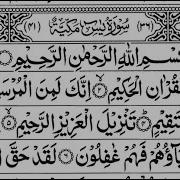 (٣٦) سُوْرَةُ يٰسٓ مَكِّيَّةٌ (٤١)
سْمِ اللهِ الرَّحْمٰنِ الرَّحِيْمِ
قُرْاٰنِ الْحَكِيْمِ ۙ اِنَّكَ لَمِنَ الْمُرْسَ
تَقِيْمٍ ؕ تَنْزِيْلَ الْعَزِيْزِ الرَّحِيْمِ ۙ
بَآؤُهُمْ فَهُمْ غٰفِلُوْنَ لَقَدْ حَقَّ ا